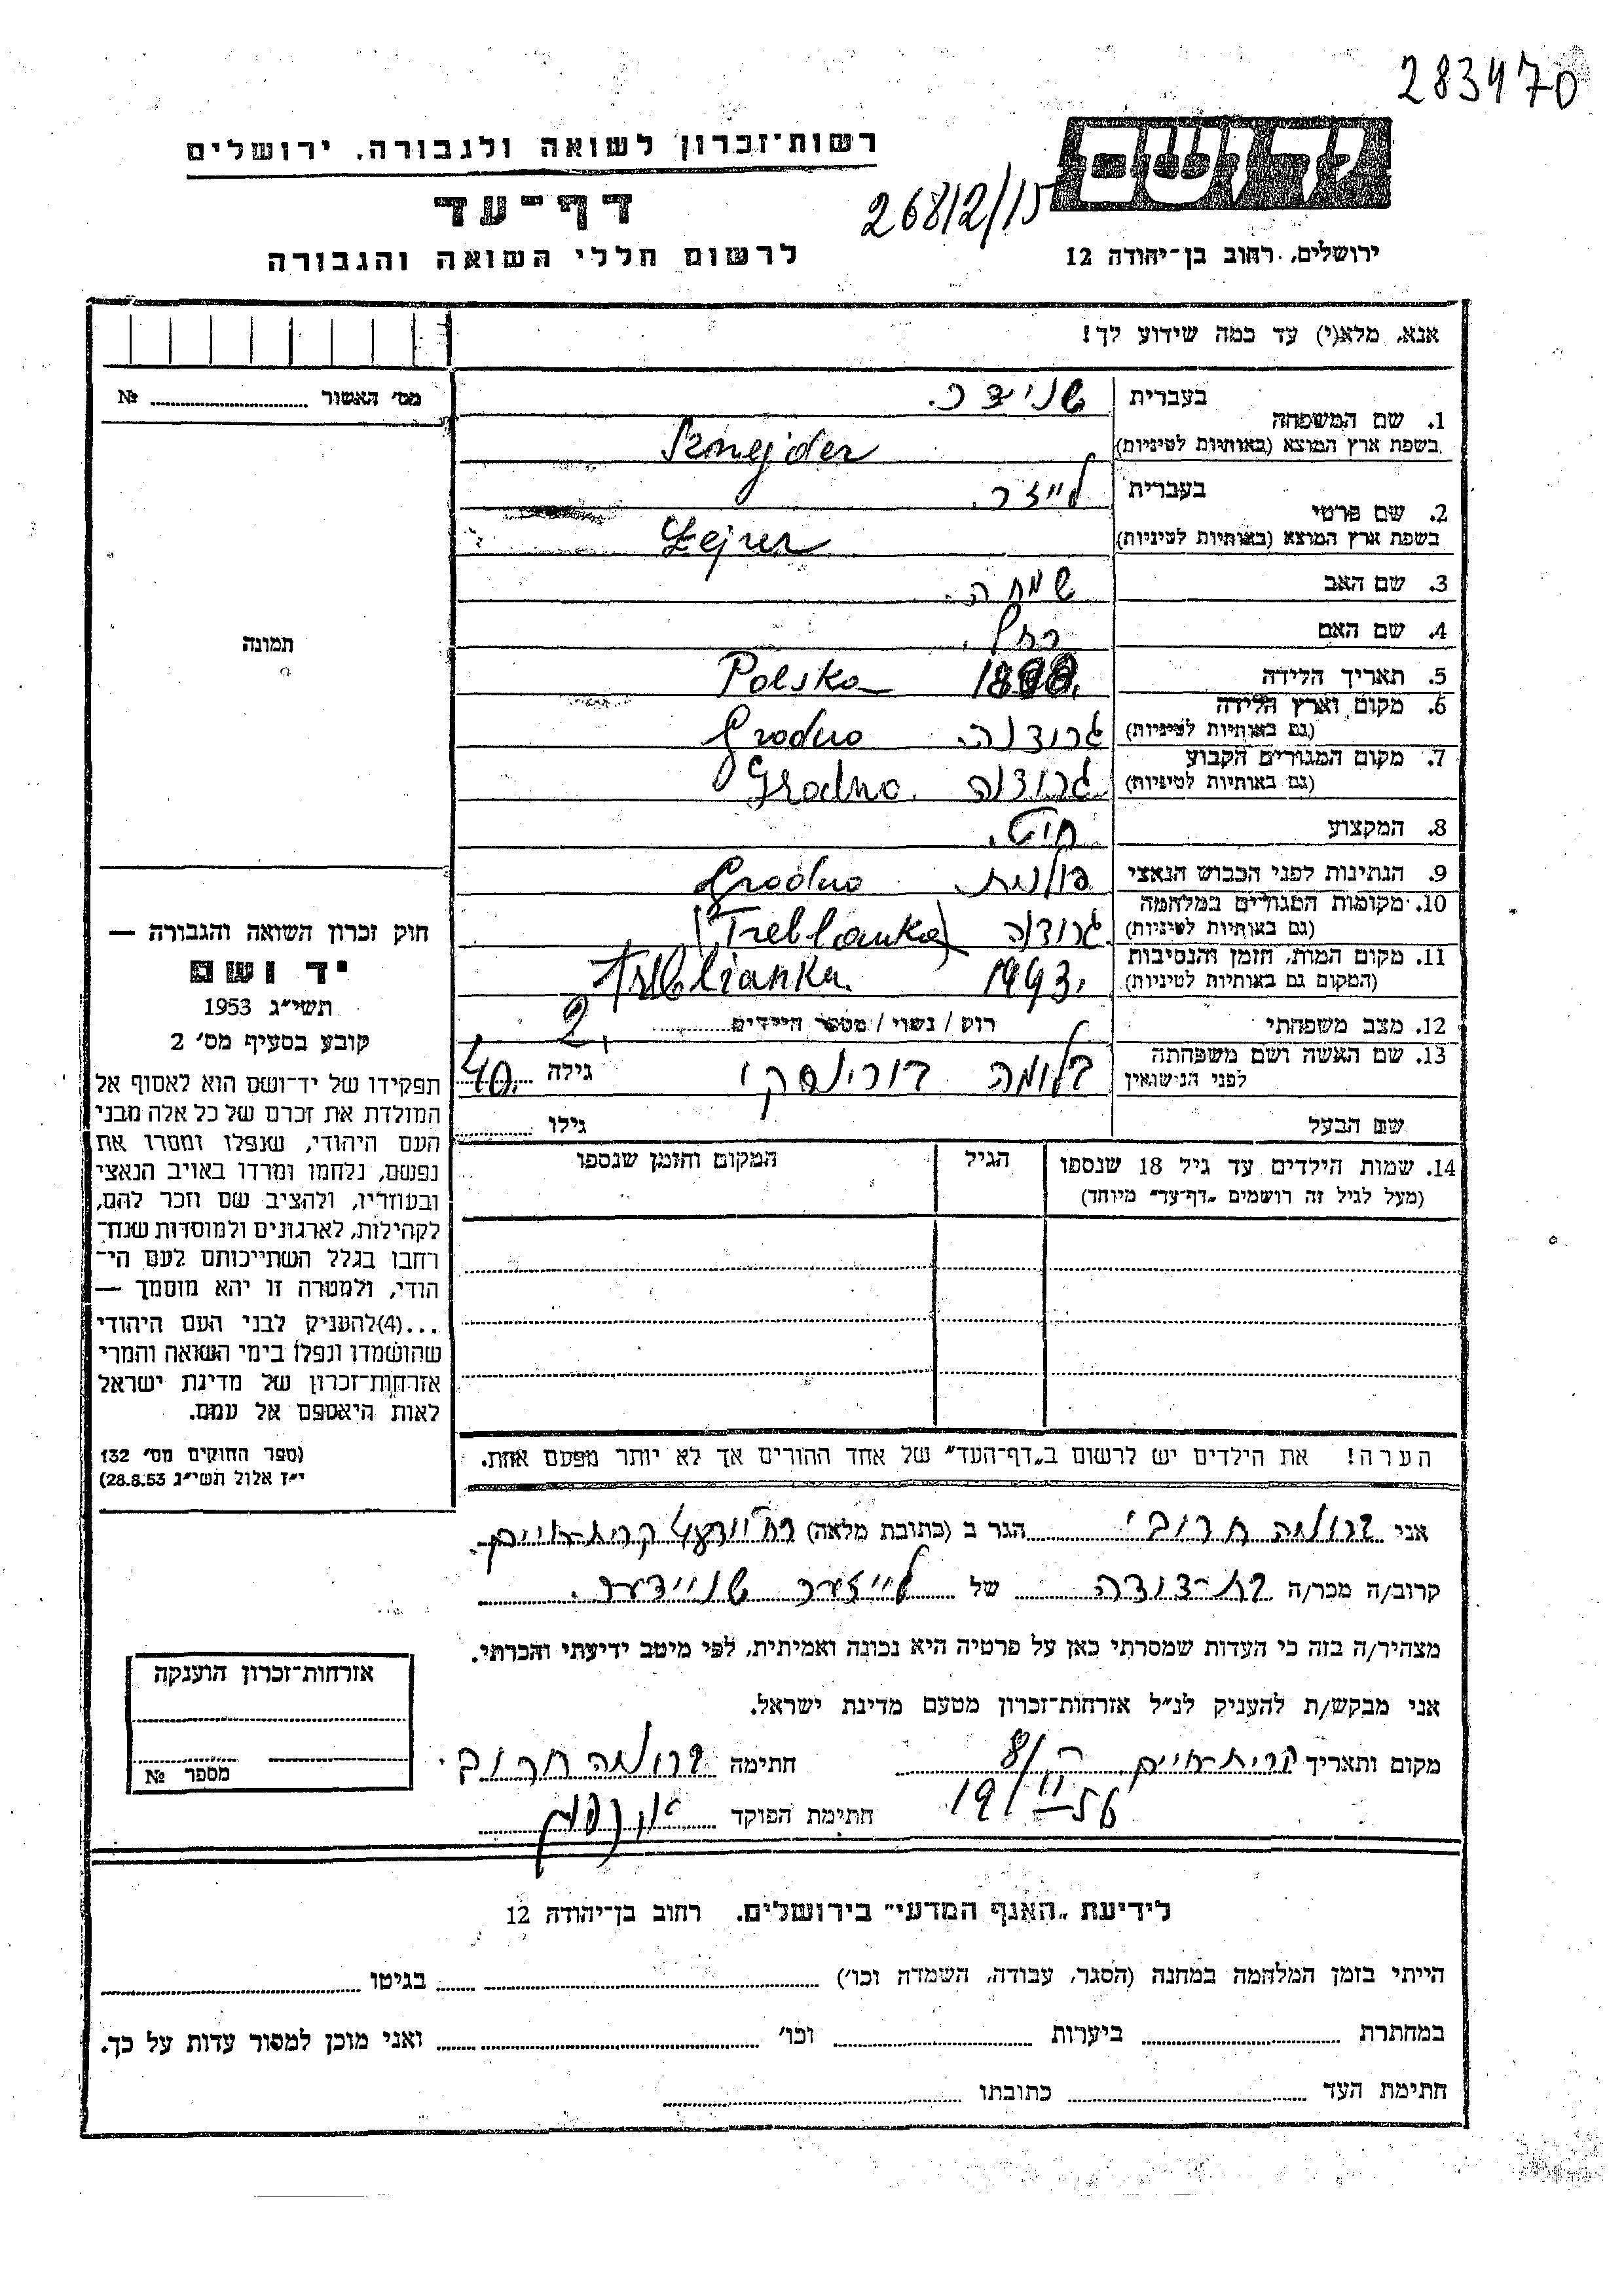 283470
רשות־זכרון לשואה ולגבורה, ירושלים
דף־עד
268/2/15
לרשום חללי השואה והגבורה
ירושלים, רחוב בן־יהודה 12
אנא, מלא(י) עד כמה שידוע לך!
מס׳ האשור № 
1. שם המשפחה בעברית שניידר.
בשפת ארץ המוצא (באותיות לטיניות) Sznejder
2. שם פרטי בעברית לייזר.
בשפת ארץ המוצא (באותיות לטיניות) Lejzer
3. שם האב שמחה.
4. שם האם רחל.
תמונה
5. תאריך הלידה Polska
6. מקום וארץ הלידה
(גם באותיות לטיניות) גרודנה. Grodno
7. מקום המגורים הקבוע
(גם באותיות לטיניות) גרודנה Grodno.
8. המקצוע חייט.
9. הנתינות לפני הכבוש הנאצי פולנית. Grodno
10. מקומות המגורים במלחמה
(גם באותיות לטיניות) גרודנה (Treblanka)
11. מקום המות, הזמן והנסיבות
(המקום גם באותיות לטיניות) 1943. Treblianka.
12. מצב משפחתי רוק / נשוי / מספר הילדים 2.
13. שם האשה ושם משפחתה
לפני הנישואין בלומה גילה 40.
שם הבעל גילו
14. שמות הילדים עד גיל 18 שנספו הגיל המקום והזמן שנספו
(מעל לגיל זה רושמים „דף־עד״ מיוחד)
הערה! את הילדים יש לרשום ב„דף־העד״ של אחד ההורים אך לא יותר מפעם אחת.
חוק זכרון השואה והגבורה —
יד ושם
תשי״ג 1953
קובע בסעיף מס׳ 2
תפקידו של יד־ושם הוא לאסוף אל
המולדת את זכרם של כל אלה מבני
העם היהודי, שנפלו ומסרו את
נפשם, נלחמו ומרדו באויב הנאצי
ובעוזריו, ולהציב שם וזכר להם,
לקהילות, לארגונים ולמוסדות שנח־
רבו בגלל השתייכותם לעם הי־
הודי, ולמטרה זו יהא מוסמך —
...(4)להעניק לבני העם היהודי
שהושמדו ונפלו בימי השואה והמרי
אזרחות־זכרון של מדינת ישראל
לאות היאספם אל עמם.
(ספר החוקים מס׳ 132
י״ז אלול תשי״ג 28.8.53)
אני ברומה חרובי הגר ב (כתובת מלאה) קרית־חיים.
קרוב/ה מכר/ה בת־דודה של לייזער שניידער.
מצהיר/ה בזה כי העדות שמסרתי כאן על פרטיה היא נכונה ואמיתית, לפי מיטב ידיעתי והכרתי.
אני מבקש/ת להעניק לנ״ל אזרחות־זכרון מטעם מדינת ישראל.
מקום ותאריך קרית־חיים חתימה ברומה חרובי
19/II 56
חתימת הפוקד
אזרחות־זכרון הוענקה
מספר №
לידיעת „האגף המדעי״ בירושלים. רחוב בן־יהודה 12
הייתי בזמן המלחמה במחנה (הסגר, עבודה, השמדה וכו׳) בגיטו
במחתרת ביערות וכו׳ ואני מוכן למסור עדות על כך.
חתימת העד כתובתו